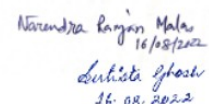 Narendra Ranjan Malas
16/08/2022
Ghosh
16.08.2022